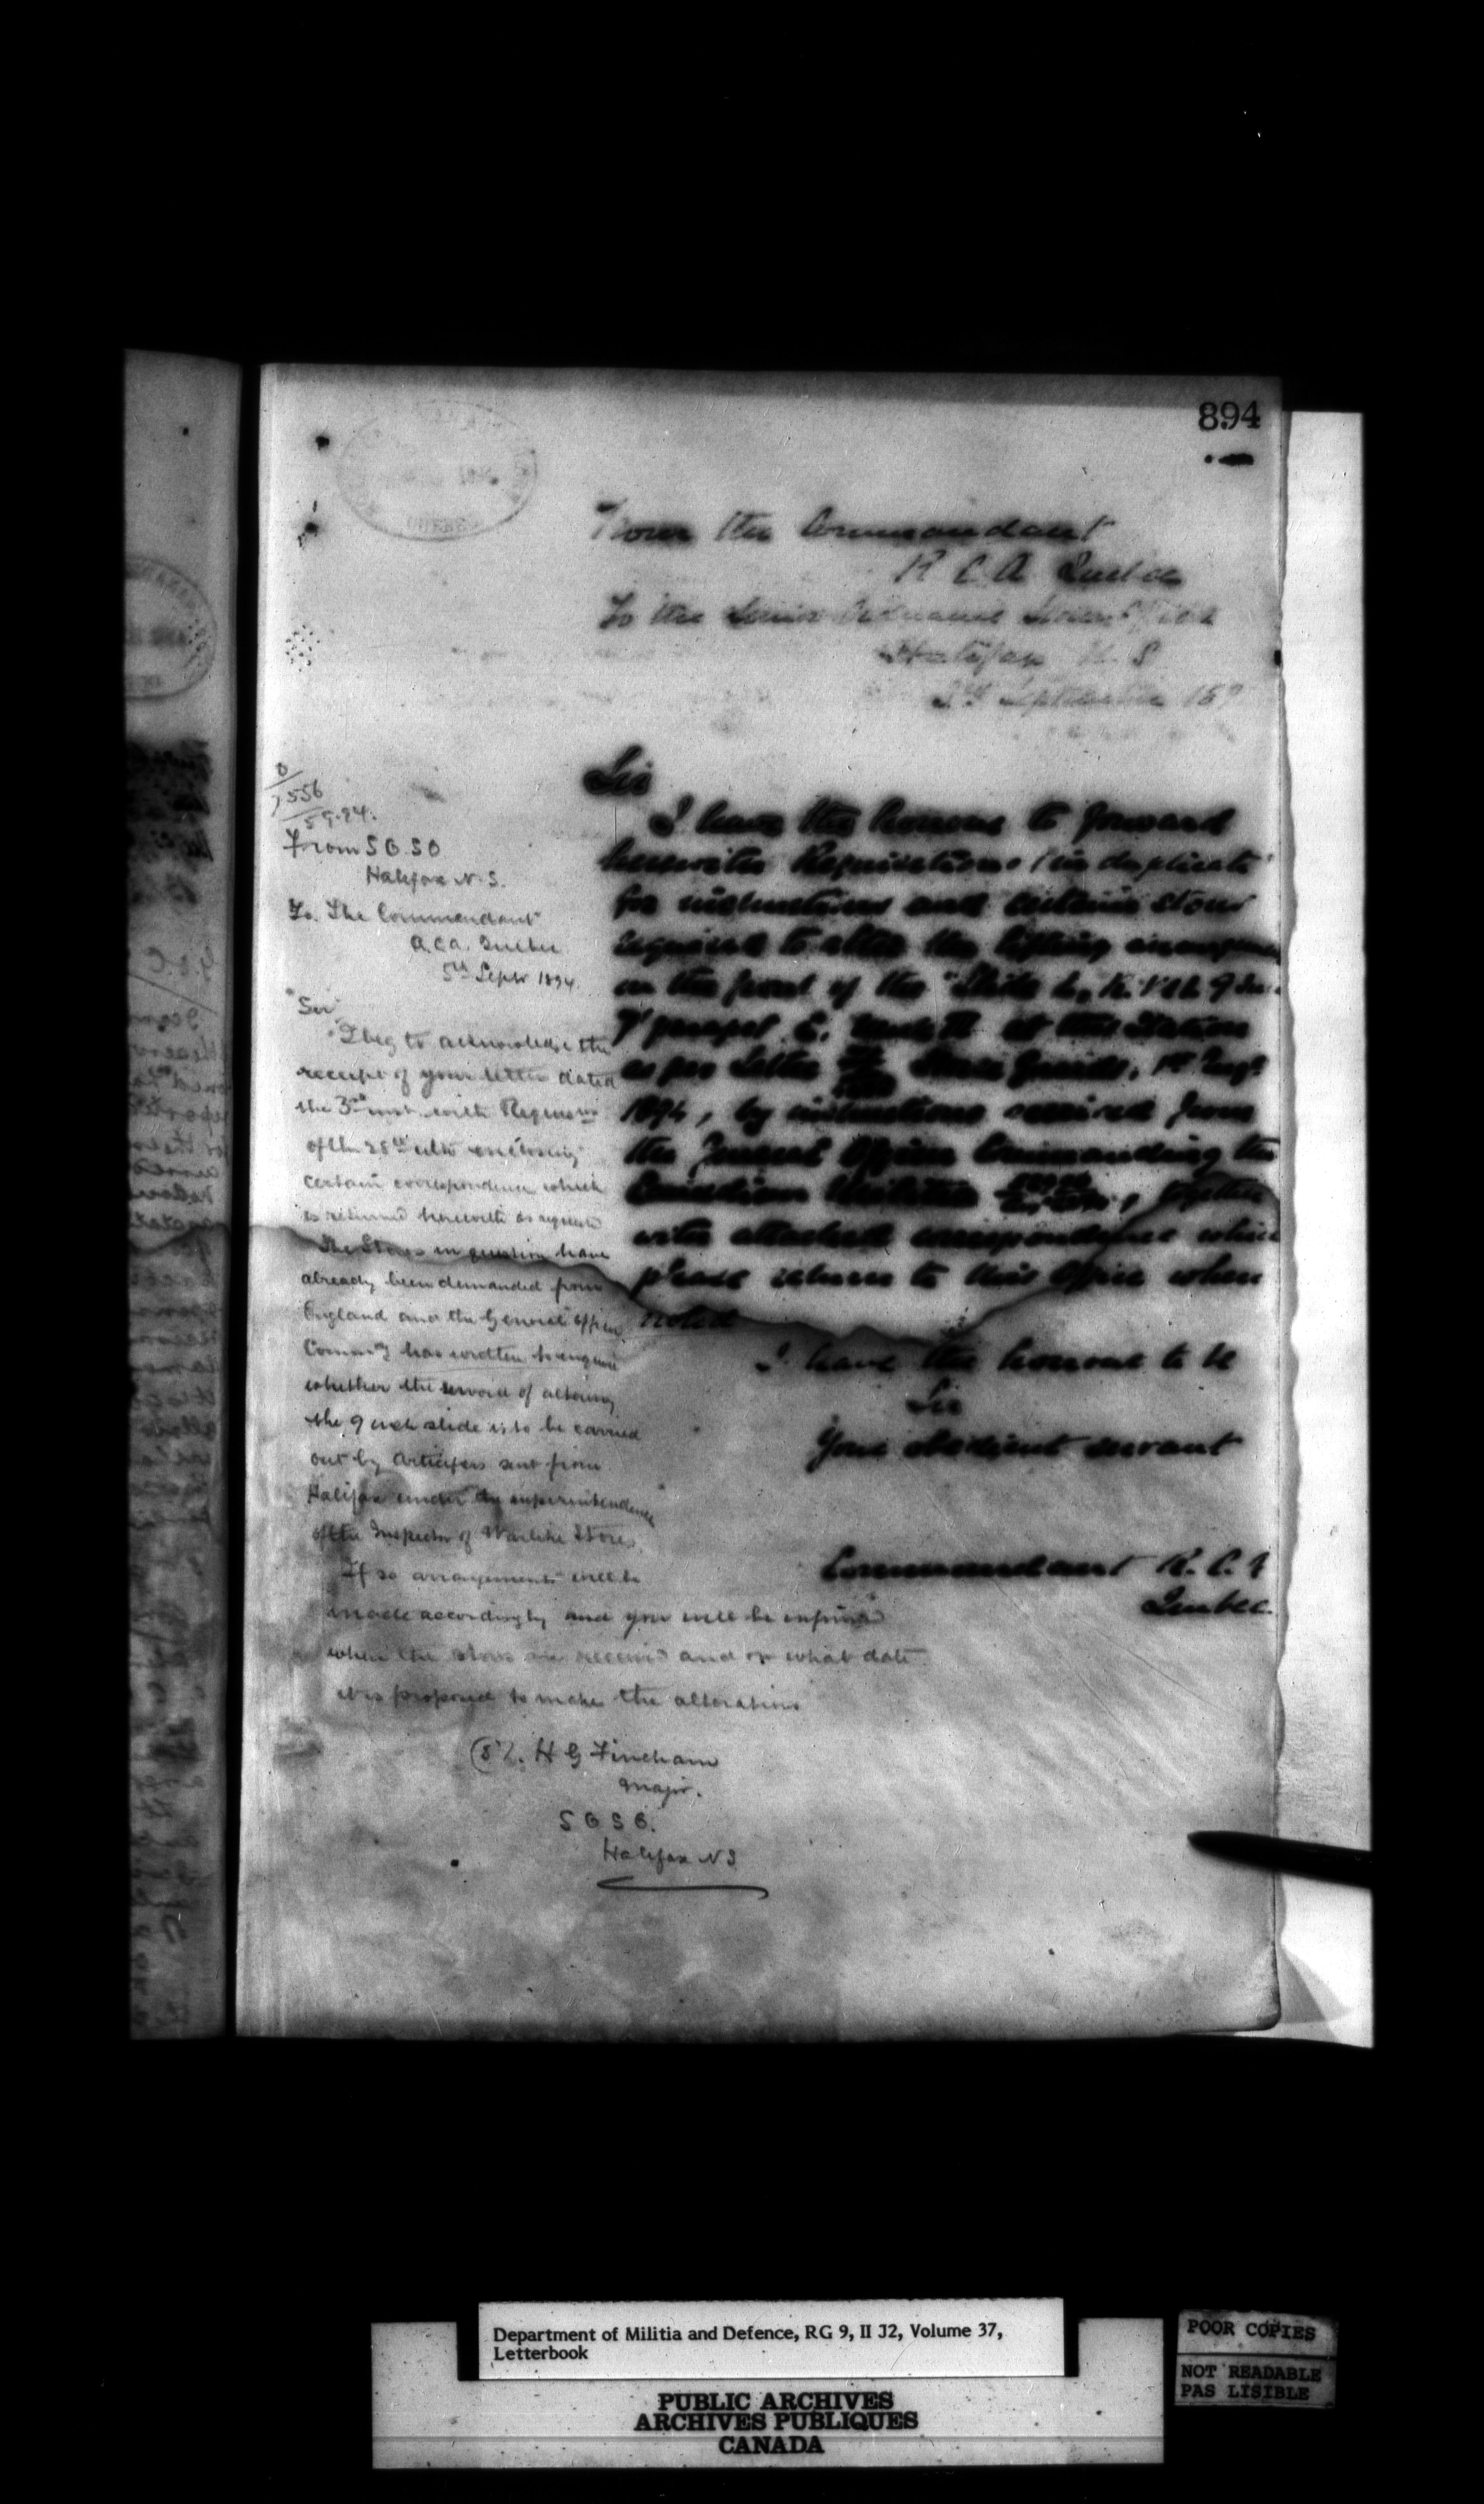 894
From the Commandant
R C A Quebec
To the Senior Ordnance Store Officer
Halifax N. S
3rd September 189
Sir
I have the honour to forward
herewith Requisitions (in duplicate
for and certain stores
required to alter the lifting
on the front of the "Slide L, 9 In.
7' parapet C. at this Station
as per Letter 1st Augt
1894, by instructions received from
the General Officer Commanding the
Canadian Militia together
with attached correspondence which
please return to this Office when
noted
I have the honour to be
Sir
Your obedient servant
Commandant R. C. A
Quebec.
0/7556
5.9.94.
From S O S O
Halifax N. S.
To. The Commandant
R.C.A. Quebec
5th Sept 1894
"Sir,
"I beg to acknowledge the
receipt of your letter dated
the 3rd inst. with
of the 28th ulto enclosing
certain correspondence which
is returned herewith as requested
The Stores in question have
already been demanded from
England and the General Officer
Commdg has written to enquire
whether the service of altering
the 9 inch slide is to be carried
out by artificers sent from
Halifax under the superintendence
of the Inspector of Warlike Stores.
If so arrangements will be
made accordingly and you will be informed
when the stores are received and on what date
it is proposed to make the alterations
(Sd). H G Fincham
Major.
S O S O.
Halifax N S
Department of Militia and Defence, RG 9, II J2, Volume 37,
Letterbook
PUBLIC ARCHIVES
ARCHIVES PUBLIQUES
CANADA
POOR COPIES
NOT READABLE
PAS LISIBLE